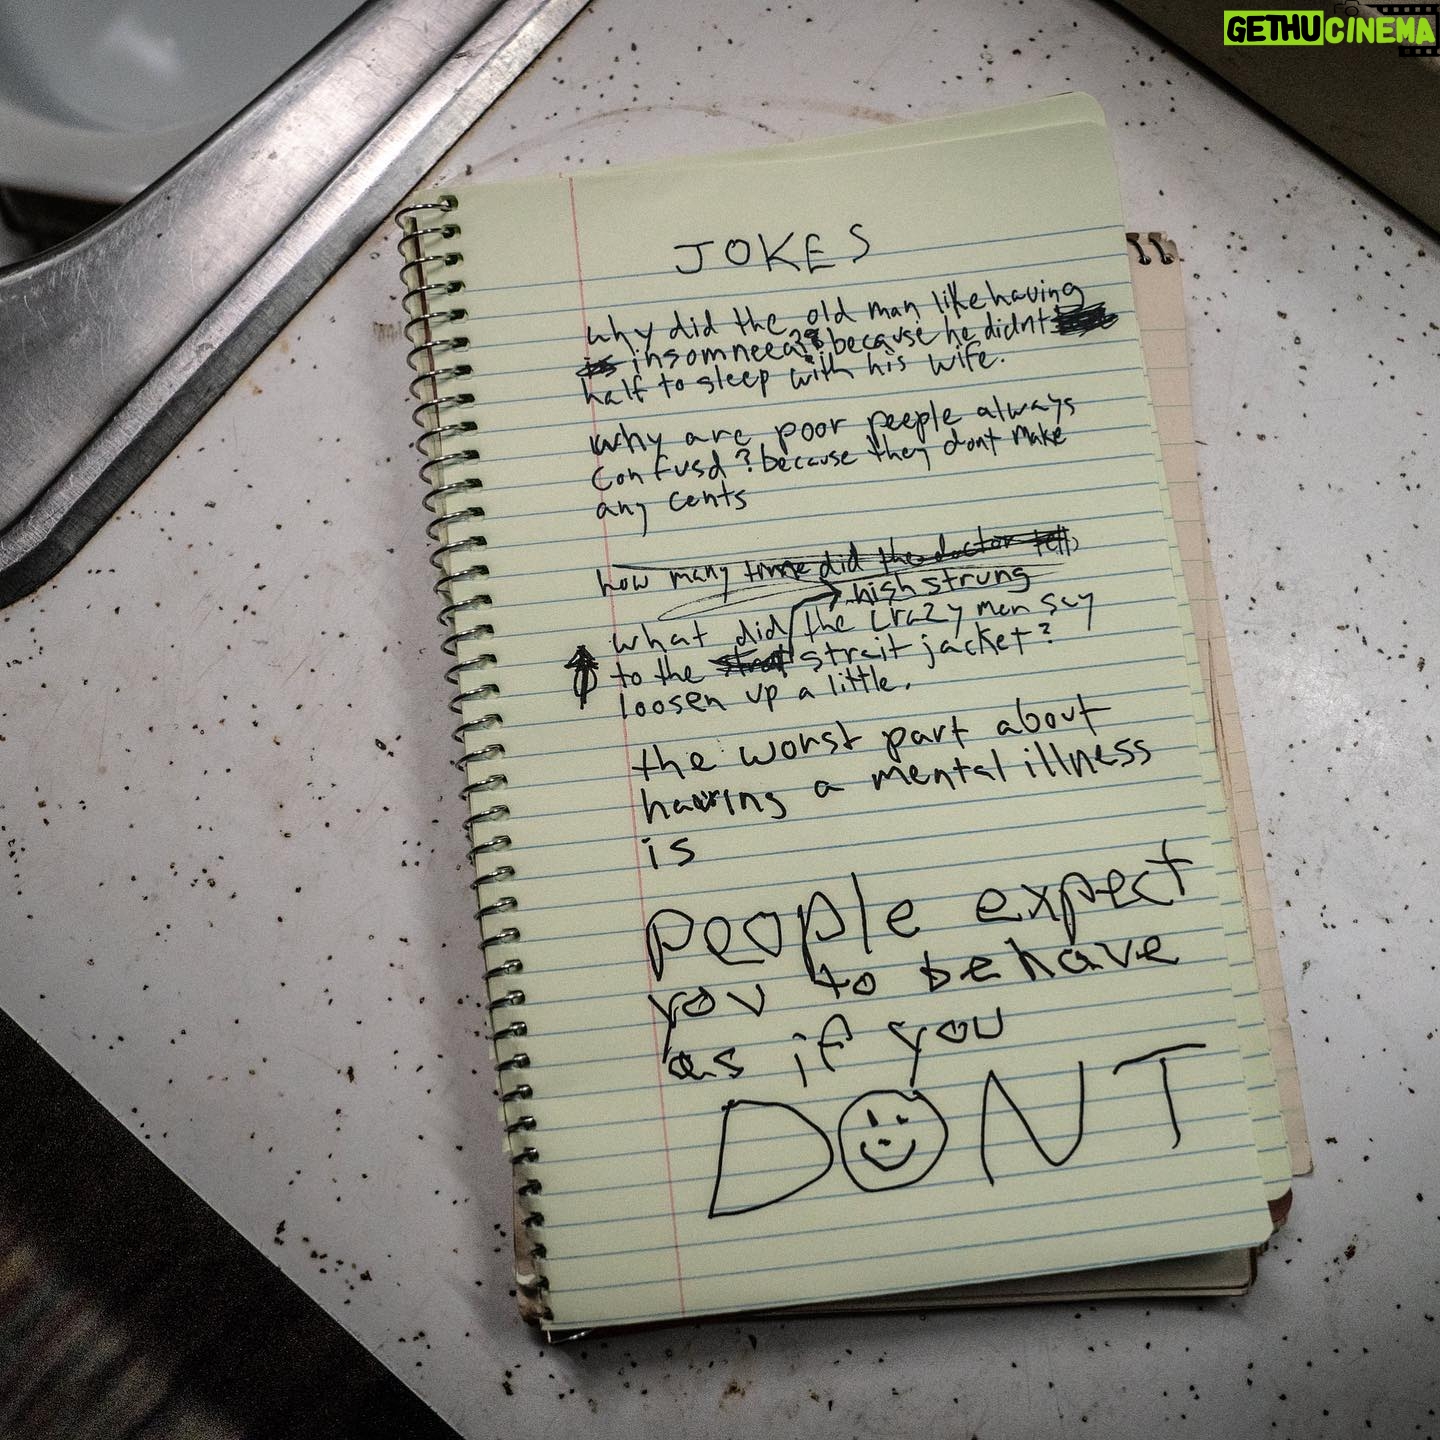 GETHUCINEMA
JOKES
why did the old man like having
insomneea?? because he didnt
half to sleep with his wife.
why are poor peeple always
confusd? because they dont make
any cents
how many time did the doctor tell
high strung
what did the crazy man say
to the strait jacket?
loosen up a little.
the worst part about
having a mental illness
is
people expect
you to behave
as if you
DONT